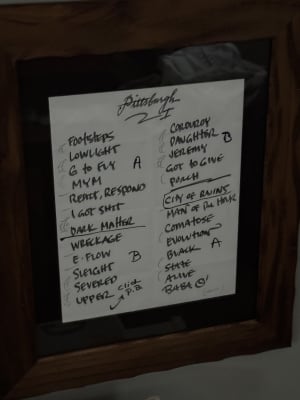 Pittsburgh
I
FOOTSTEPS
LOWLIGHT
G TO FLY A
MYM
REACT, RESPOND
I GOT SHIT
DARK MATTER
WRECKAGE
E. FLOW
SLEIGHT B
SEVERED
UPPER
CORDUROY
DAUGHTER B
JEREMY
GOT TO GIVE
PORCH
CITY OF RUINS
MAN OF THE HOUR
COMATOSE
EVOLUTION
BLACK A
STATE
ALIVE
BABA